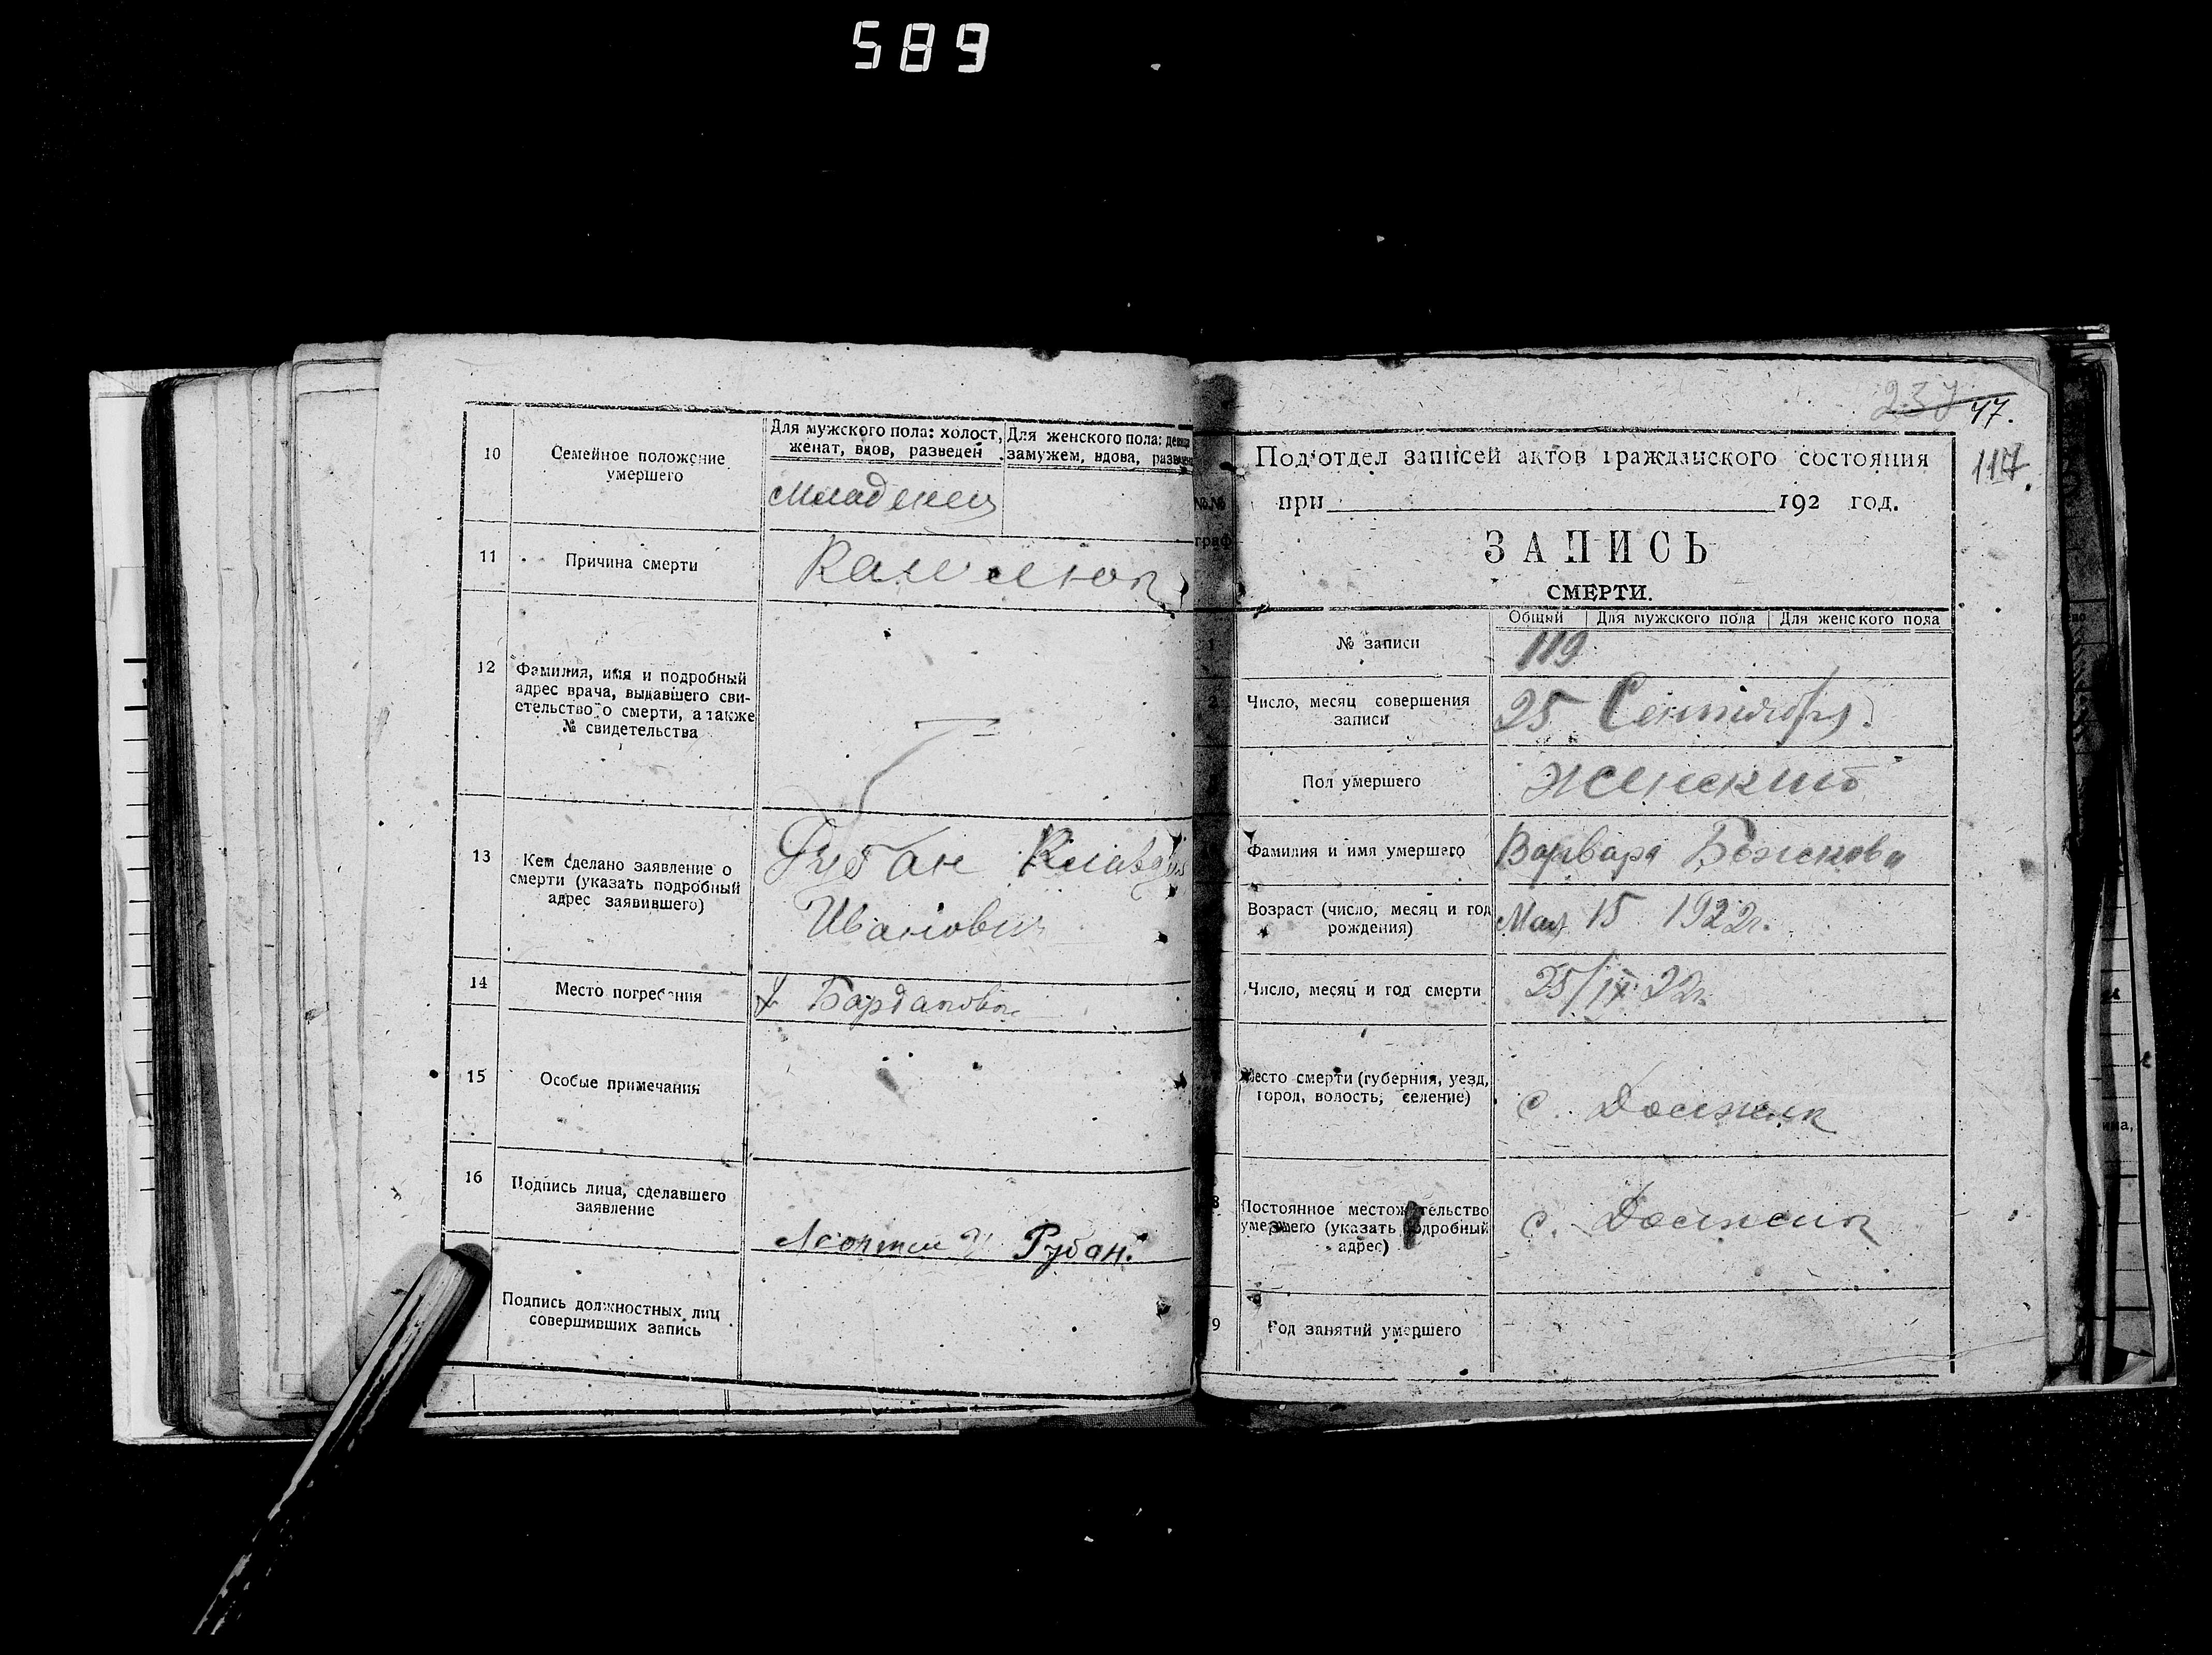 589
10
Семейное положение
умершего
Для мужского пола: холост,
женат, вдов, разведен
Для женского пола: девица
замужем, вдова, разведена
Младенец
11
Причина смерти
12
Фамилия, имя и подробный
адрес врача, выдавшего сви-
етельство о смерти, а также
№ свидетельства
13
Кем сделано заявление о
смерти (указать подробный
адрес заявившего)
Рубан
Иванович
14
Место погребения
15
Особые примечания
16
Подпись лица, сделавшего
заявление
Рубан.
Подпись должностных лиц
совершивших запись
237 47.
117.
Под'отдел записей актов гражданского состояния
при 192 год.
№№
граф
ЗАПИСЬ
СМЕРТИ.
Общий Для мужского пола Для женского пола
1 № записи
119
2 Число, месяц совершения
записи
25 Сентября.
Пол умершего
Женский
Фамилия и имя умершего
Варвара Божкова
Возраст (число, месяц и год
рождения)
Мая 15 1922г.
Число, месяц и год смерти
25/IX 22г.
Место смерти (губерния, уезд,
город, волость, селение)
с. Должик
8 Постоянное местожительство
умершего (указать подробный
адрес)
с. Должик
9 Род занятий умершего